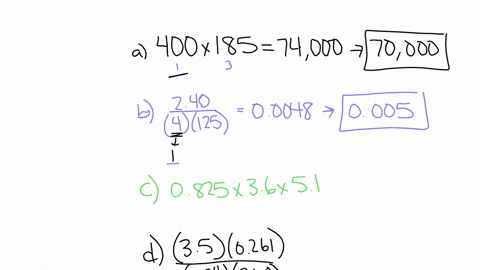 a) 400 x 185 = 74,000 → 70,000
1 3
b) 2.40
(4)(125) = 0.0048 → 0.005
1
c) 0.825 x 3.6 x 5.1
d) (3.5)(0.261)